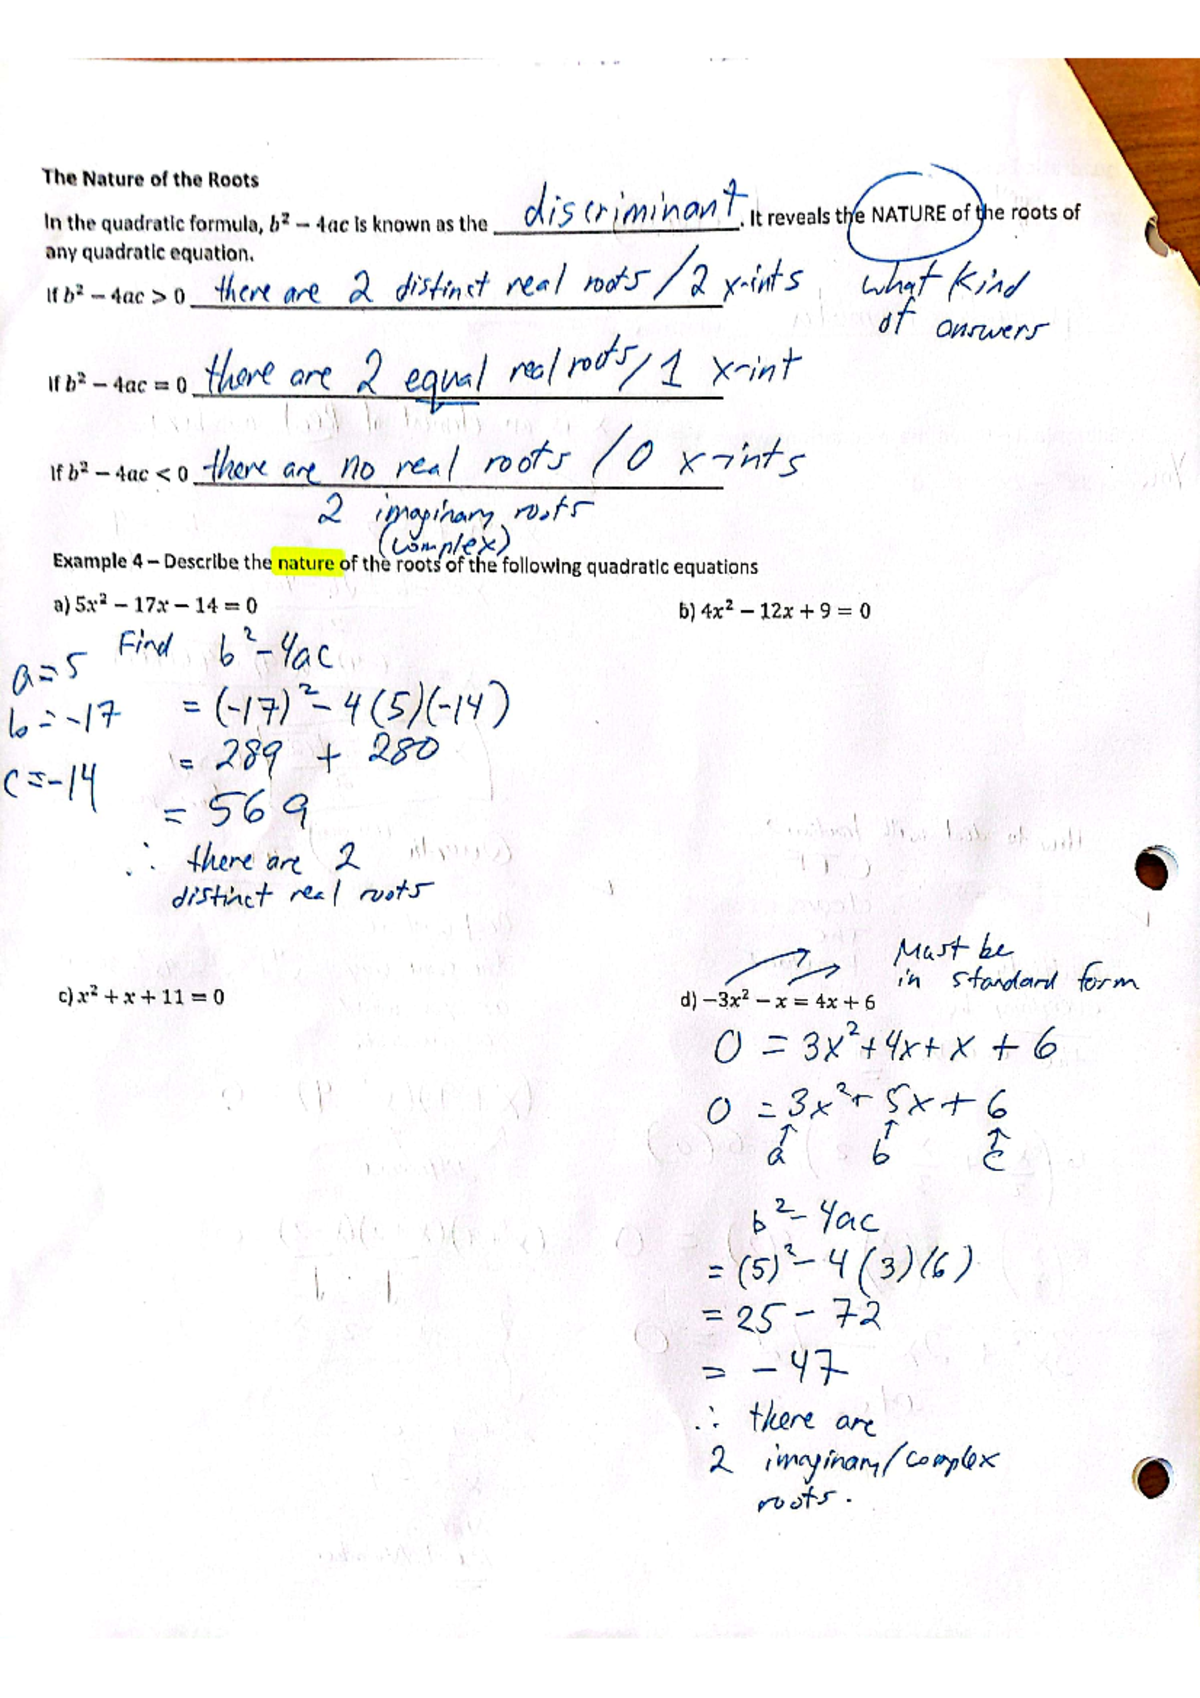 The Nature of the Roots
In the quadratic formula, b² – 4ac is known as the discriminant. It reveals the NATURE of the roots of
any quadratic equation.
what kind
of answers
If b² – 4ac > 0 there are 2 distinct real roots / 2 x-ints
If b² – 4ac = 0 there are 2 equal real roots, 1 x-int
If b² – 4ac < 0 there are no real roots / 0 x-ints
2 imaginary roots
(complex)
Example 4 – Describe the nature of the roots of the following quadratic equations
a) 5x² – 17x – 14 = 0
a=5
b=-17
c=-14
Find b²-4ac
= (-17)² - 4(5)(-14)
= 289 + 280
= 569
∴ there are 2
distinct real roots
b) 4x² – 12x + 9 = 0
c) x² + x + 11 = 0
Must be
in standard form
d) –3x² – x = 4x + 6
0 = 3x²+4x+x+6
0 = 3x²+5x+6
a b c
b²-4ac
= (5)²-4(3)(6)
= 25 - 72
= -47
∴ there are
2 imaginary/complex
roots.